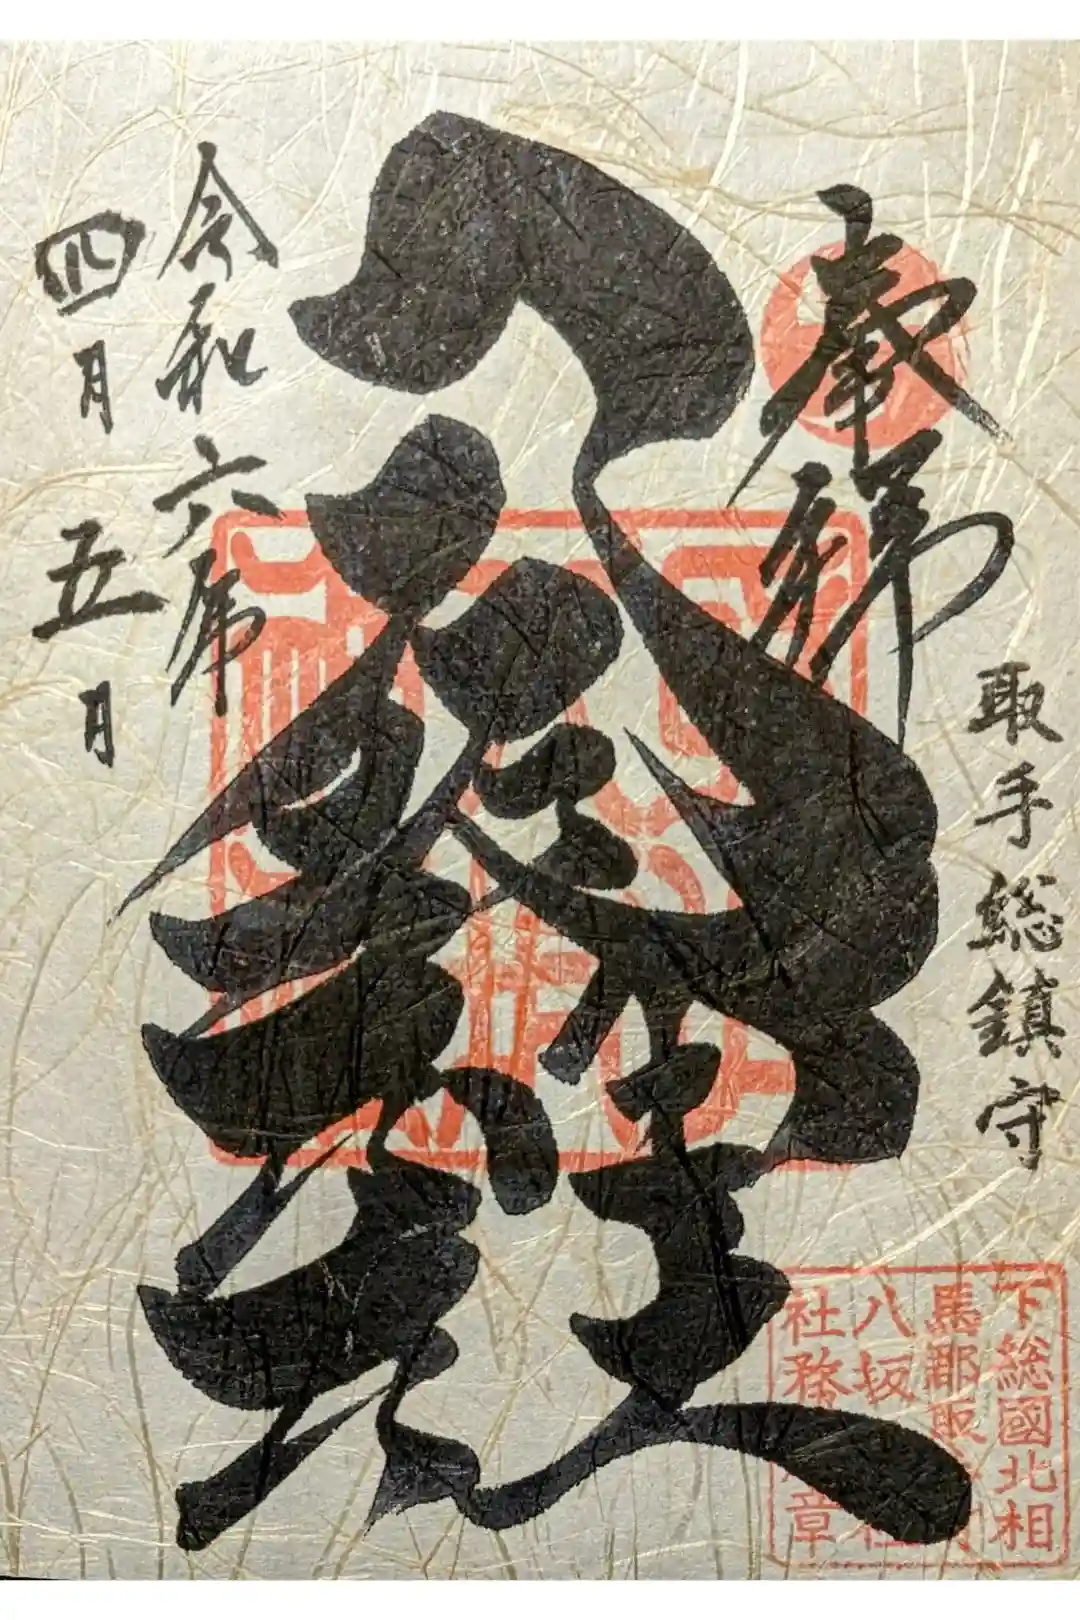 奉拝
取手総鎮守
八坂神社
令和六年
四月五日
下総國北相
馬郡取手町
八坂神社
社務所章